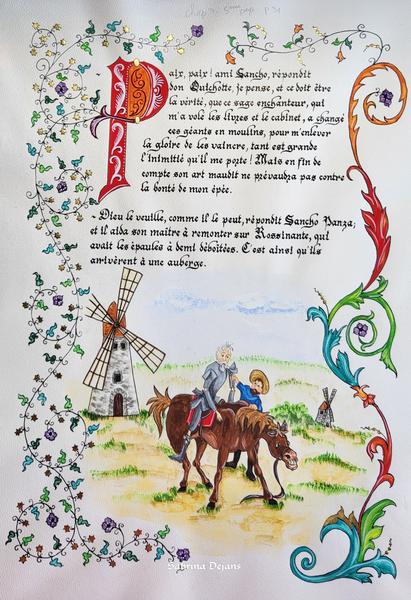 Paix, paix! ami Sancho, répondit
don Quichotte, je pense, et ce doit être
la vérité, que ce sage enchanteur, qui
m'a volé les livres et le cabinet, a changé
ces géants en moulins, pour m'enlever
la gloire de les vaincre, tant est grande
l'inimitié qu'il me porte! Mais en fin de
compte son art maudit ne prévaudra pas contre
la bonté de mon épée.
- Dieu le veuille, comme il le peut, répondit Sancho Panza;
et il aida son maître à remonter sur Rossinante, qui
avait les épaules à demi déboîtées. C'est ainsi qu'ils
arrivèrent à une auberge.
Sabrina Dejans